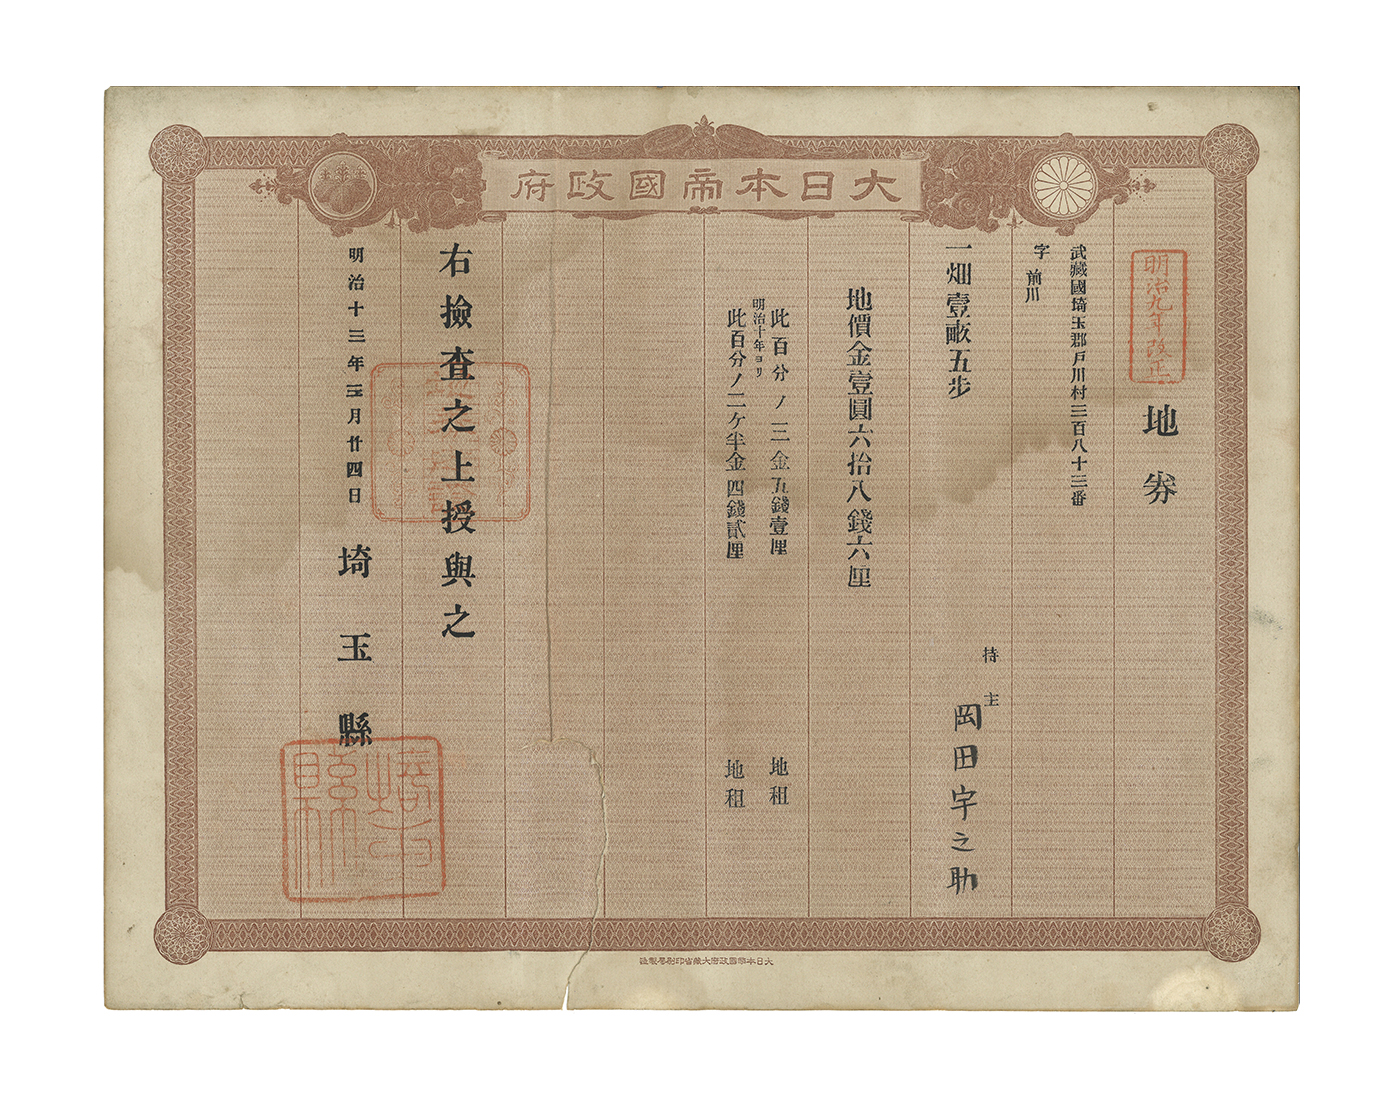 大日本帝國政府
明治九年改正
地券
武藏國埼玉郡戸川村三百八十三番
字 前川
一畑壹畝五歩
持主 岡田宇之助
地價金壹圓六拾八錢六厘
此百分ノ三金五錢壹厘 地租
明治十年ヨリ
此百分ノ二ケ半金四錢貳厘 地租
右撿査之上授與之
明治十三年三月廿四日 埼玉縣
大日本帝國政府大藏省印刷局製造